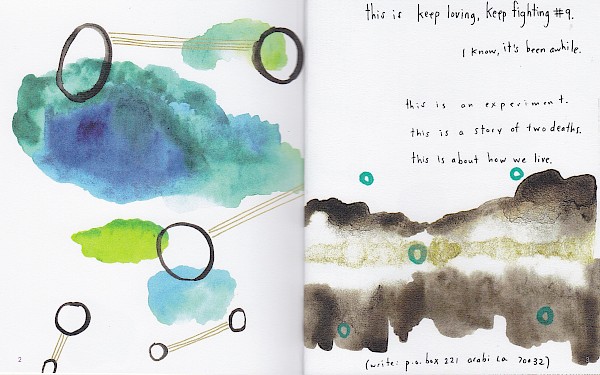 this is keep loving, keep fighting #9.
I know, it's been awhile.
this is an experiment.
this is a story of two deaths.
this is about how we live.
(write: p.o. box 221 arabi la 70032)
2